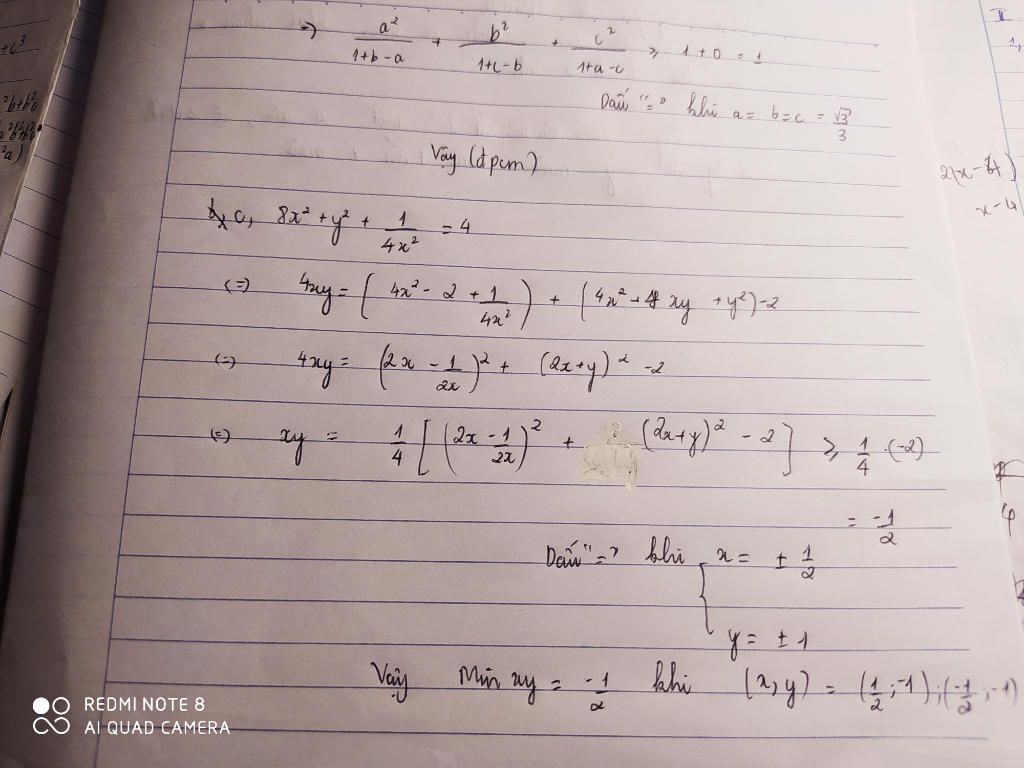 => a²/(1+b-a) + b²/(1+c-b) + c²/(1+a-c) ≥ 1+0 = 1
Dấu "=" khi a = b = c = √3/3
Vậy (đpcm)
c, 8x² + y² + 1/(4x²) = 4
(=) 4xy = (4x² - 2 + 1/(4x²)) + (4x² + 4xy + y²) - 2
(=) 4xy = (2x - 1/(2x))² + (2x+y)² - 2
(=) xy = 1/4 [(2x - 1/(2x))² + (2x+y)² - 2] ≥ 1/4 . (-2)
= -1/2
Dấu "=" khi { x = ± 1/2
y = ± 1
Vậy Min xy = -1/2 khi (x,y) = (1/2 ; -1) ; (-1/2 ; -1)
REDMI NOTE 8
AI QUAD CAMERA